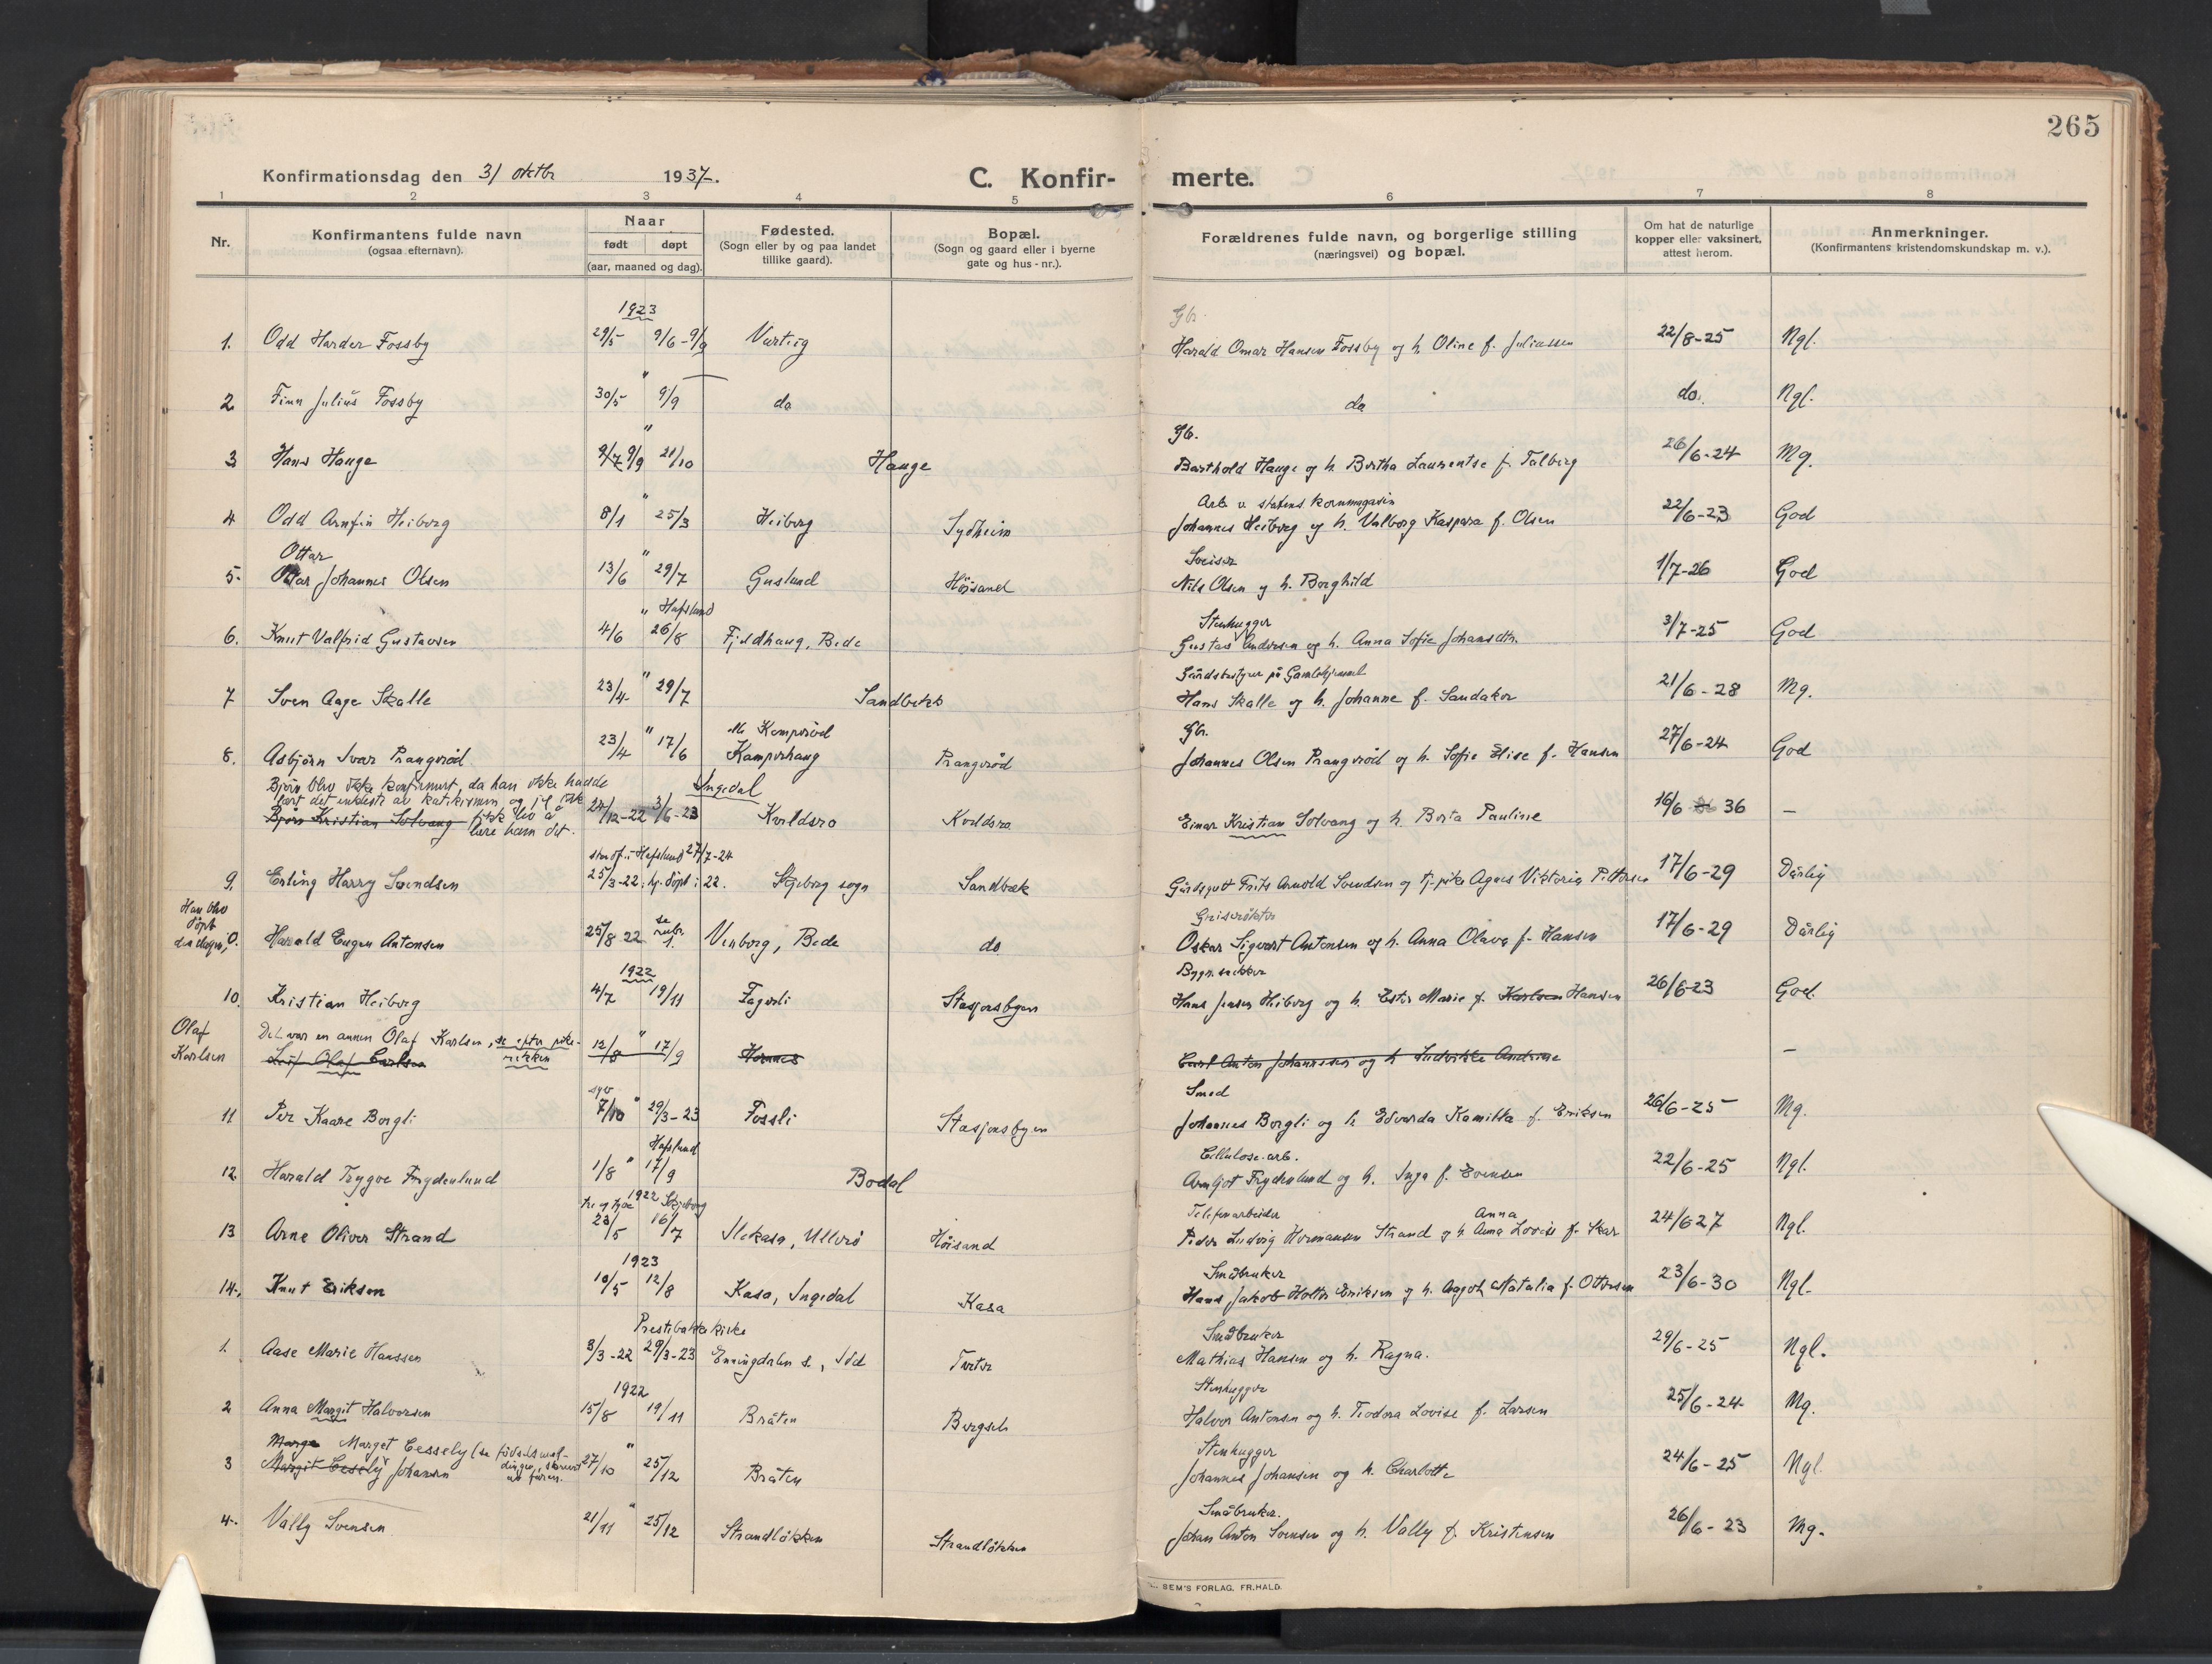 265
Konfirmationsdag den 31 oktbr 1937.
C. Konfirmerte.
1 2 3 4 5 6 7 8
Nr.
Konfirmantens fulde navn
(ogsaa efternavn).
Naar
født døpt
(aar, maaned og dag).
Fødested.
(Sogn eller by og paa landet
tillike gaard).
Bopæl.
(Sogn og gaard eller i byerne
gate og hus-nr.).
Forældrenes fulde navn, og borgerlige stilling
(næringsvei) og bopæl.
Om hat de naturlige
kopper eller vaksinert,
attest herom.
Anmerkninger.
(Konfirmantens kristendomskundskap m. v.).
1923
Gbr.
1. Odd Harder Fossby 29/5 9/6-9/9 Vartvig Harald Omar Hansen Fossby og h. Oline f. Juliussen 22/8-25 Ngl.
"
2 Finn Julius Fossby 30/5 9/9 do do do. Ngl.
" Gb.
3 Hans Hauge 9/9 21/10 Hauge Barthold Hauge og h. Bertha Laurentse f. Talberg 26/6-24 Mg.
" Arb. v. statens kornmagasin
4 Odd Arnfin Heiberg 8/1 25/3 Heiberg Sydheim Johannes Heiberg og h. Valborg Kaspara f. Olsen 22/6-23 God
Ottar " Sveiser
5. Ottar Johannes Olsen 13/6 29/7 Guslund Höisand Nils Olsen og h. Borghild 1/7-26 God
" Hafslund Stenhugger
6. Knut Valfrid Gustavsen 4/6 26/8 Fjeldhaug, Bede Gustav Andersen og h. Anna Sofie Johansdtr. 3/7-25 God
" Gårdsbestyrer på Gamlehjemmet
7 Sven Aage Skalle 23/4 29/7 Sandbekk Hans Skalle og h. Johanne f. Sandaker 21/6-28 Mg.
" Gb.
8. Asbjörn Ivar Prangeröd 23/4 17/6 Kamperhaug Prangeröd Johannes Olsen Prangeröd og h. Sofie Elise f. Hansen 27/6-24 God
Björn blev ikke konfirmert, da han ikke hadde
lært det enkleste av katekismen og jeg ikke
fikk lov å
lære ham det.
Ingedal
Björn Kristian Solvang 24/12-22 3/6-23 Kveldsro Kveldsro Einar Kristian Solvang og h. Berta Pauline 16/6 36 –
i Hafslund 27/7-24
9. Erling Harry Svendsen 25/3-22 hj. döpt i 22. Skjeberg sogn Sandbæk Gårdsgutt Frits Arnold Svendsen og tj.pike Agnes Viktoria Pettersen 17/6-29 Dårlig
Han blev
döpt
den dagen, 0.
Griserökter
Harald Eugen Antonsen 25/8-22 se rubr. 1. Venborg, Bede do Oskar Sigvart Antonsen og h. Anna Olava f. Hansen 17/6-29 Dårlig
1922 Bygn.snekker
10. Kristian Heiberg 4/7 19/11 Fagerli Stasjonsbyen Hans Jensen Heiberg og h. Ester Marie f. Karlsen Hansen 26/6-23 God.
Olaf
Karlsen
Det var en annen Olaf Karlsen, se efter pike-
rekken
Leif Olaf Carlsen 12/8 " 17/9 Hornnes Carl Anton Johannesen og h. Ludvikke Andrine –
syv Smed
11 Per Kaare Borgli 7/10 " 29/3-23 Fossli Stasjonsbyen Johannes Borgli og h. Edvarda Kamilla f. Eriksen 26/6-25 Mg.
Hafslund Cellulose-arb.
12 Harald Trygve Frydenlund 1/8 " 17/9 Bodal Arnljot Frydenlund og h. Inga f. Evensen 22/6-25 Ngl.
tre og tyve 1922 Skjeberg Telefonarbeider Anna
13 Arne Oliver Strand 23/5 16/7 Slekasa, Ullerö Höisand Peder Ludvig Hermansen Strand og h. Anna Lovise f. Skar 24/6 27 Ngl.
1923 Småbruker
14. Knut Eriksen 10/5 12/8 Kasa, Ingedal Kasa Hans Jakob Holter Eriksen og h. Aagot Natalia f. Ottersen 23/6-30 Ngl.
Prestebakke kirke Småbruker
1. Aase Marie Hanssen 3/3-22 29/3-23 Enningdalen s., Idd Tveter Mathias Hansen og h. Ragna. 29/6-25 Ngl.
1922 Stenhugger
2 Anna Margit Halvorsen 15/8 19/11 Bråten Halvor Antonsen og h. Teodora Lovise f. Larsen 25/6-24 Mg.
Marge Marget Cessely (se fødselsmel-
dingen, skrevet
av faren.
" Stenhugger
3 Margit Cesely Johansen 27/10 25/12 Bråten Johannes Johansen og h. Charlotte 24/6-25 Ngl.
" Småbruker.
4. Vally Svensen 21/11 25/12 Strandlökken Strandlökken Johan Anton Svensen og h. Vally f. Kristensen 26/6-23 Mg.
SEM'S FORLAG, FR.HALD.